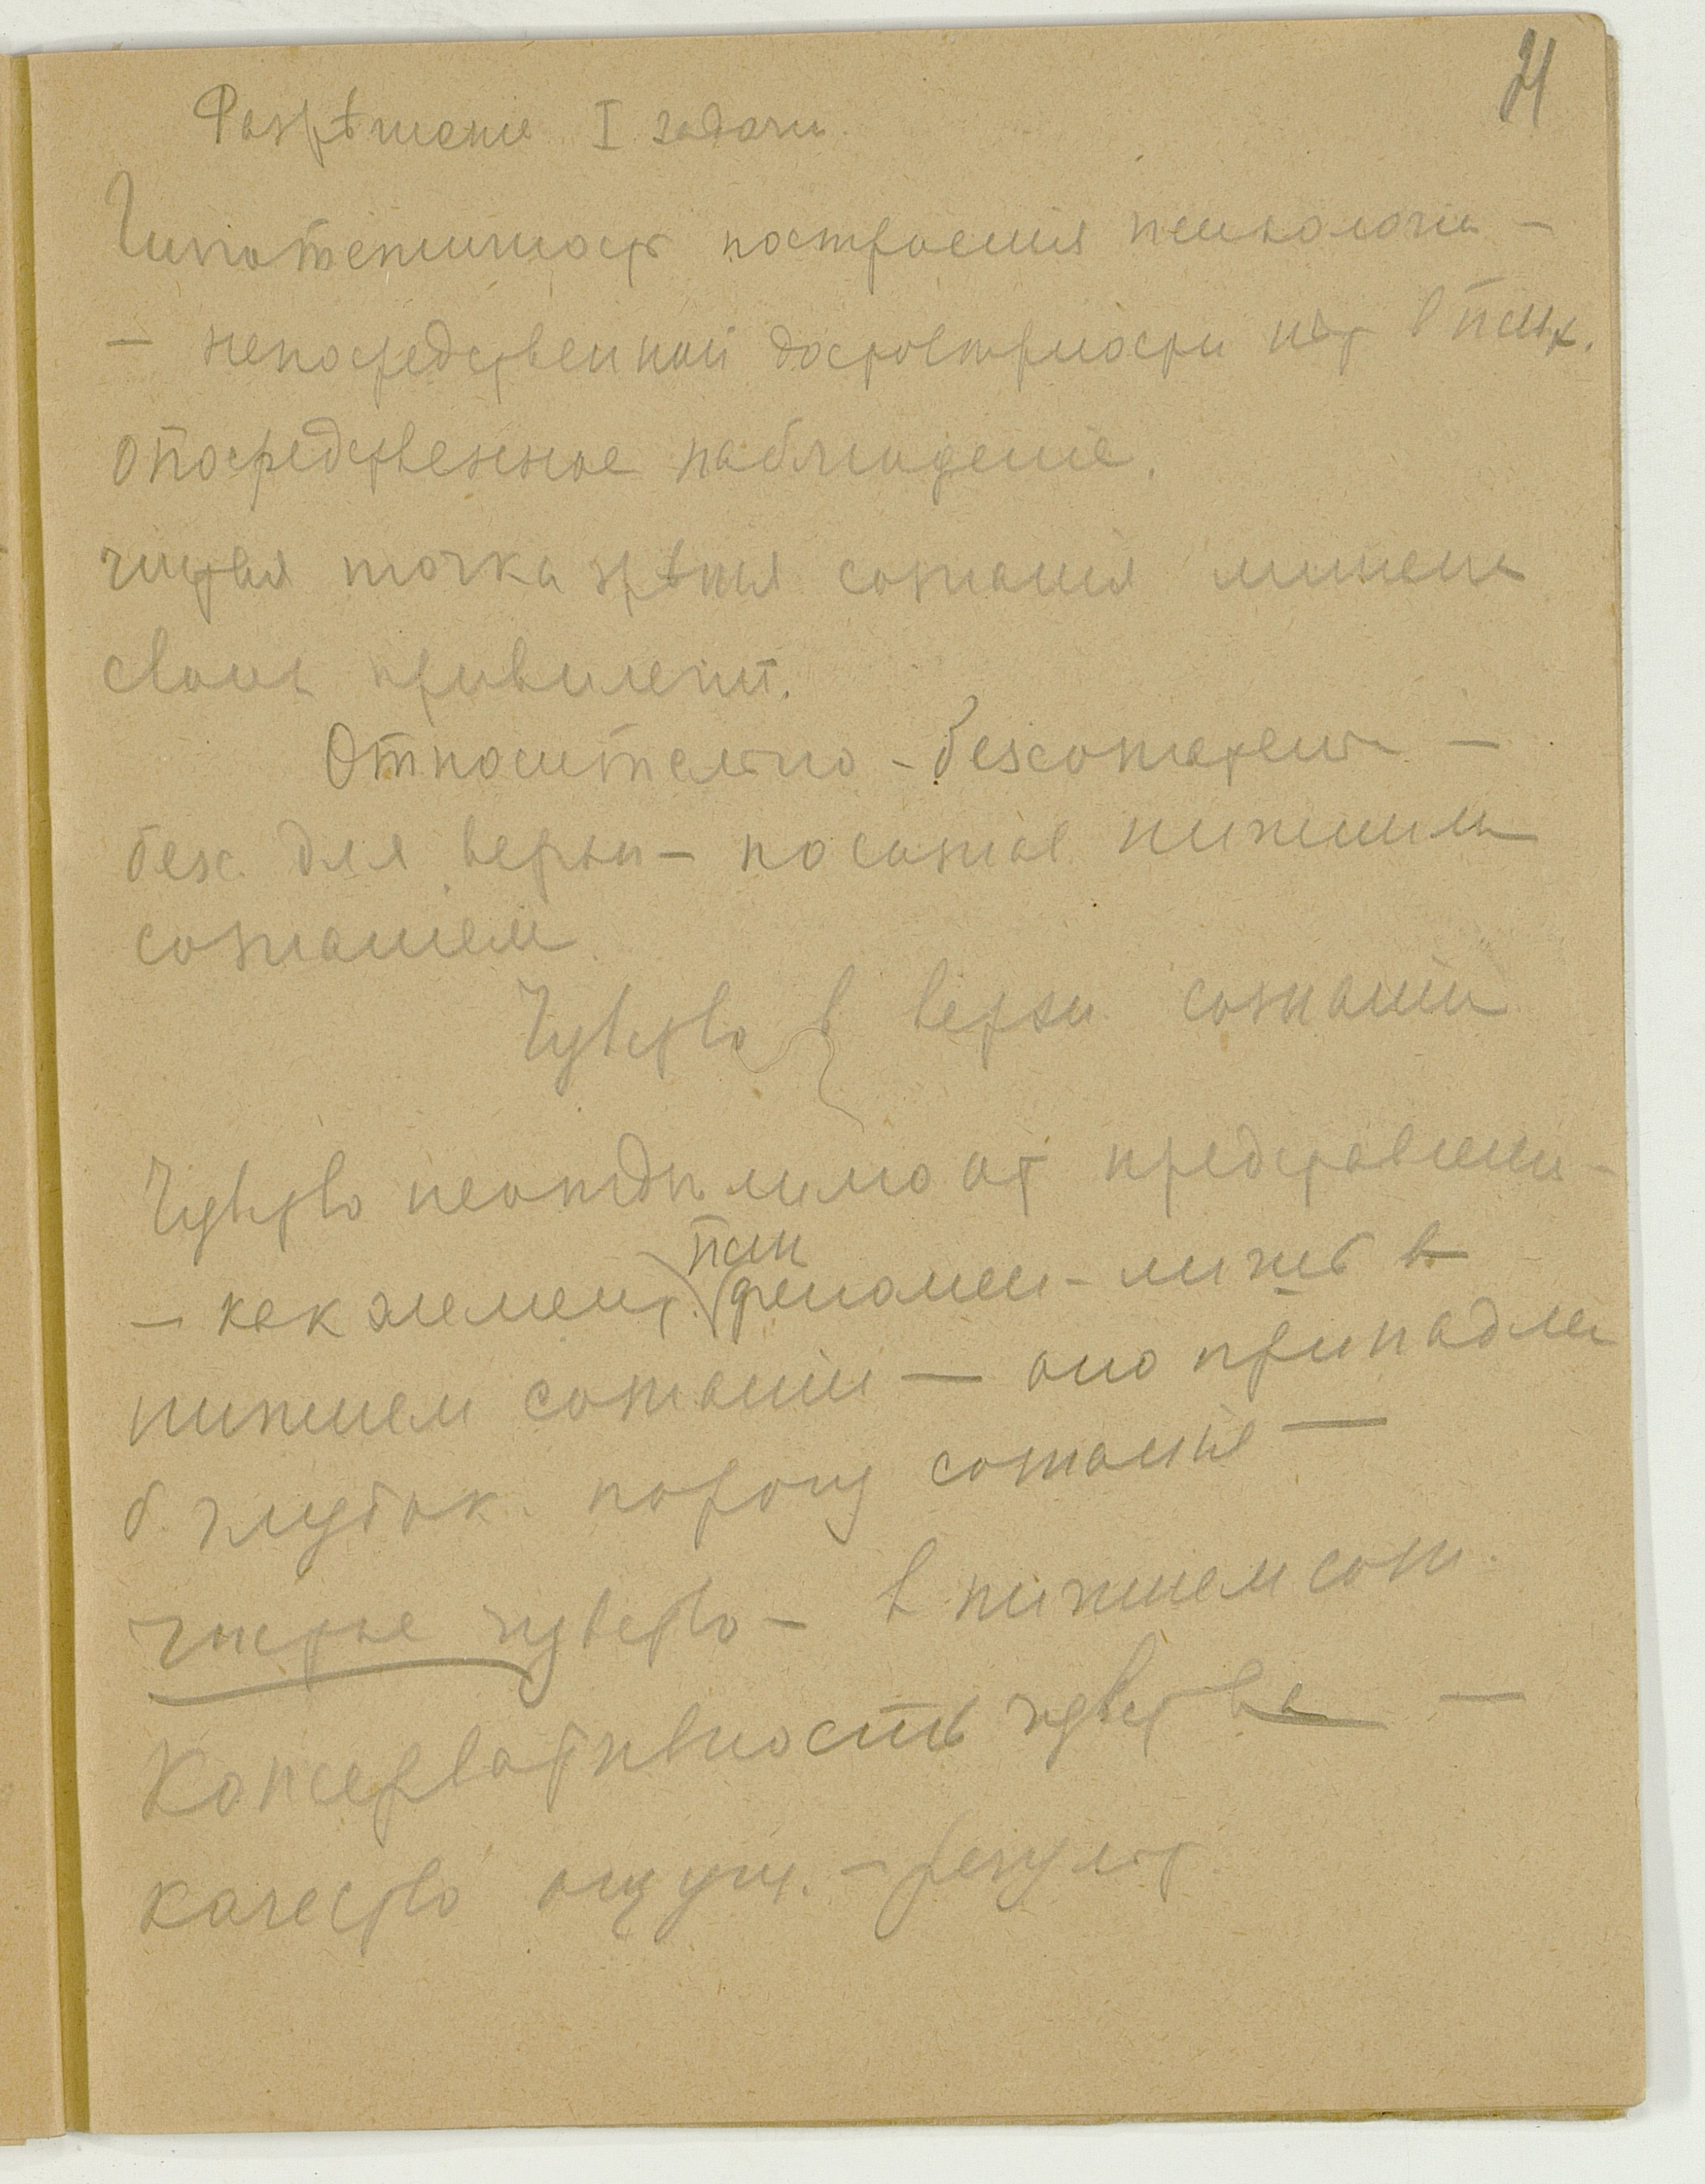 21
Разрѣшенiе I задачи.
Гипотетичность построенiя психологiи –
– непосредственной достовѣрности нет в псих.
опосредственное наблюденiе.
чистая точка зрѣнiя сознанiя лишена
своих привилегiй.
Относительно - безсознателен –
безс. для верхн – но сознае нижним
сознанiем
Чувство в верхн сознанiи
Чувство неотдѣлимо от представленi –
– как элемент. псих феномен – лишь в
нижнем сознанiи — оно принадле
б. глубок. порогу сознанiя —
чистое чувство – в нижнем созн.
Консервативность чувства —
качество ощущ. – результ